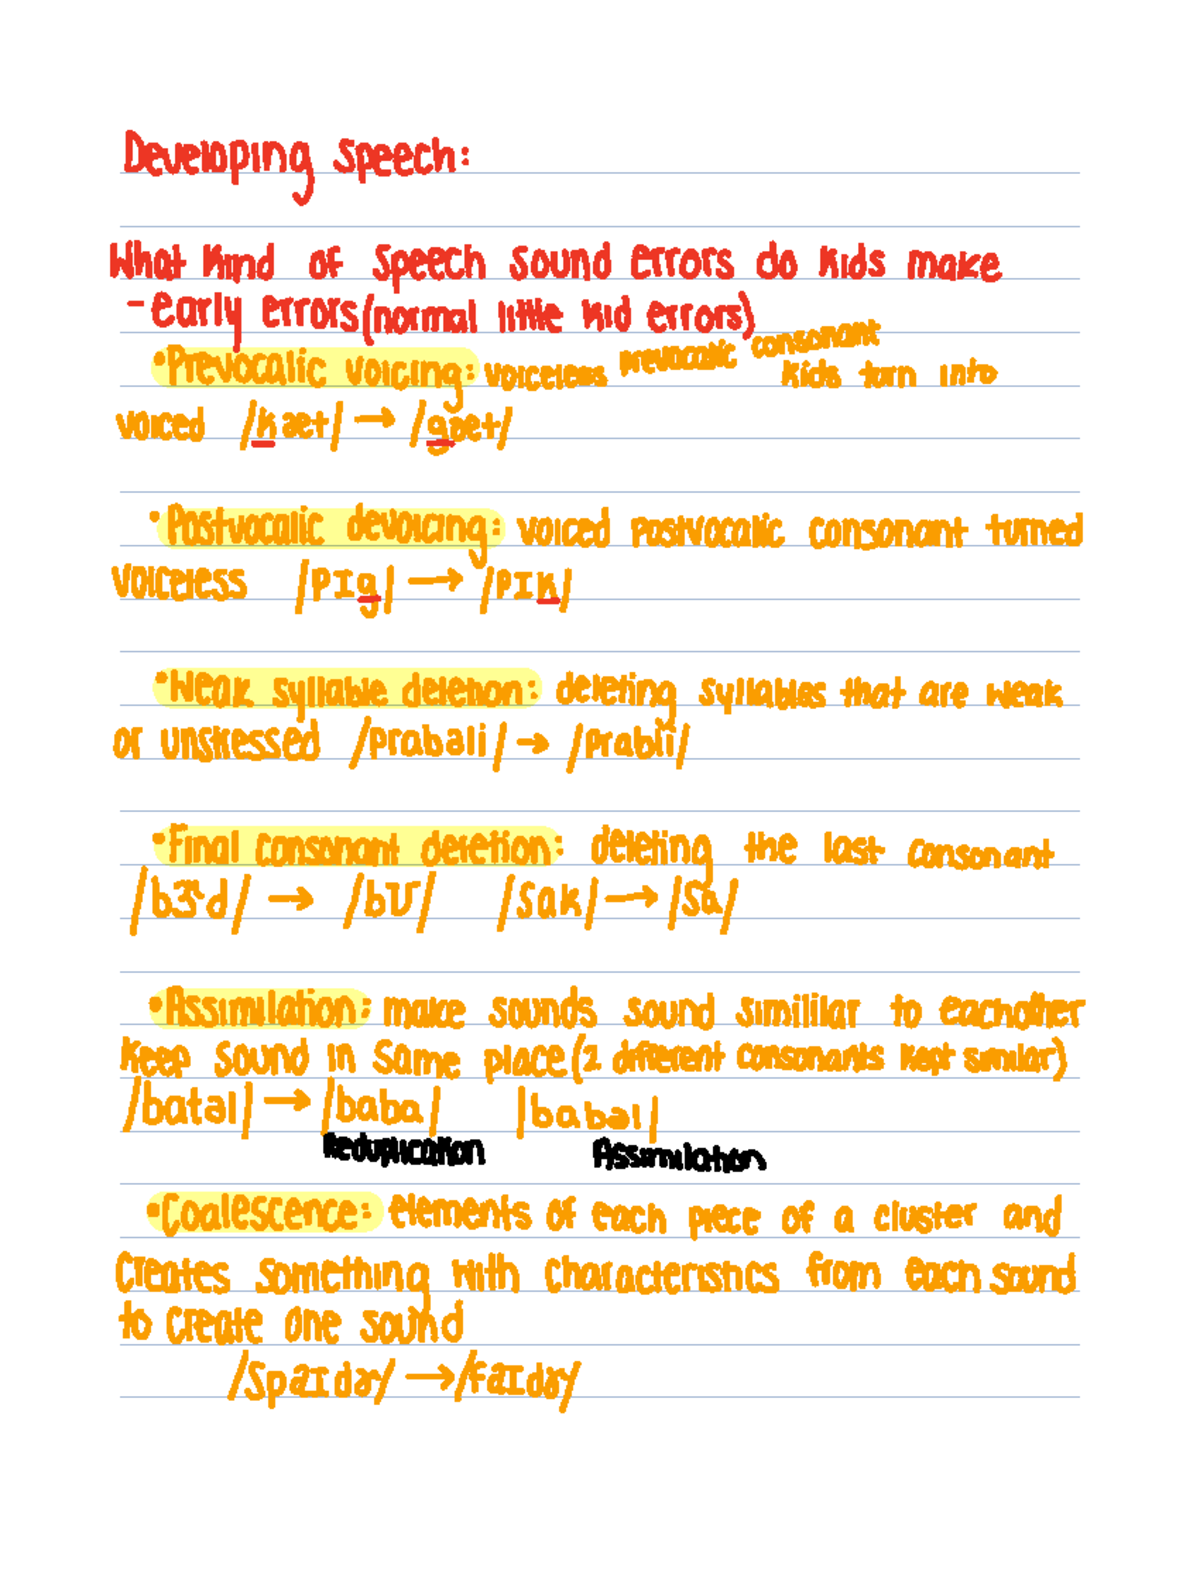 Developing speech:
What kind of speech sound errors do kids make
- early errors (normal little kid errors)
• Prevocalic voicing: voiceless prevocalic consonant kids turn into
voiced /kæt/ → /gæt/
• Postvocalic devoicing: voiced postvocalic consonant turned
voiceless /pɪg/ → /pɪk/
• Weak syllable deletion: deleting syllables that are weak
or unstressed /prabəli/ → /prabli/
• Final consonant deletion: deleting the last consonant
/bɝd/ → /bʊ/ /sak/ → /sa/
• Assimilation: make sounds sound simililar to eachother
keep sound in same place (2 different consonants kept similar)
/batəl/ → /baba/ /babəl/
Reduplication Assimilation
• Coalescence: elements of each piece of a cluster and
creates something with characteristics from each sound
to create one sound
/spaɪdɚ/ → /faɪdɚ/